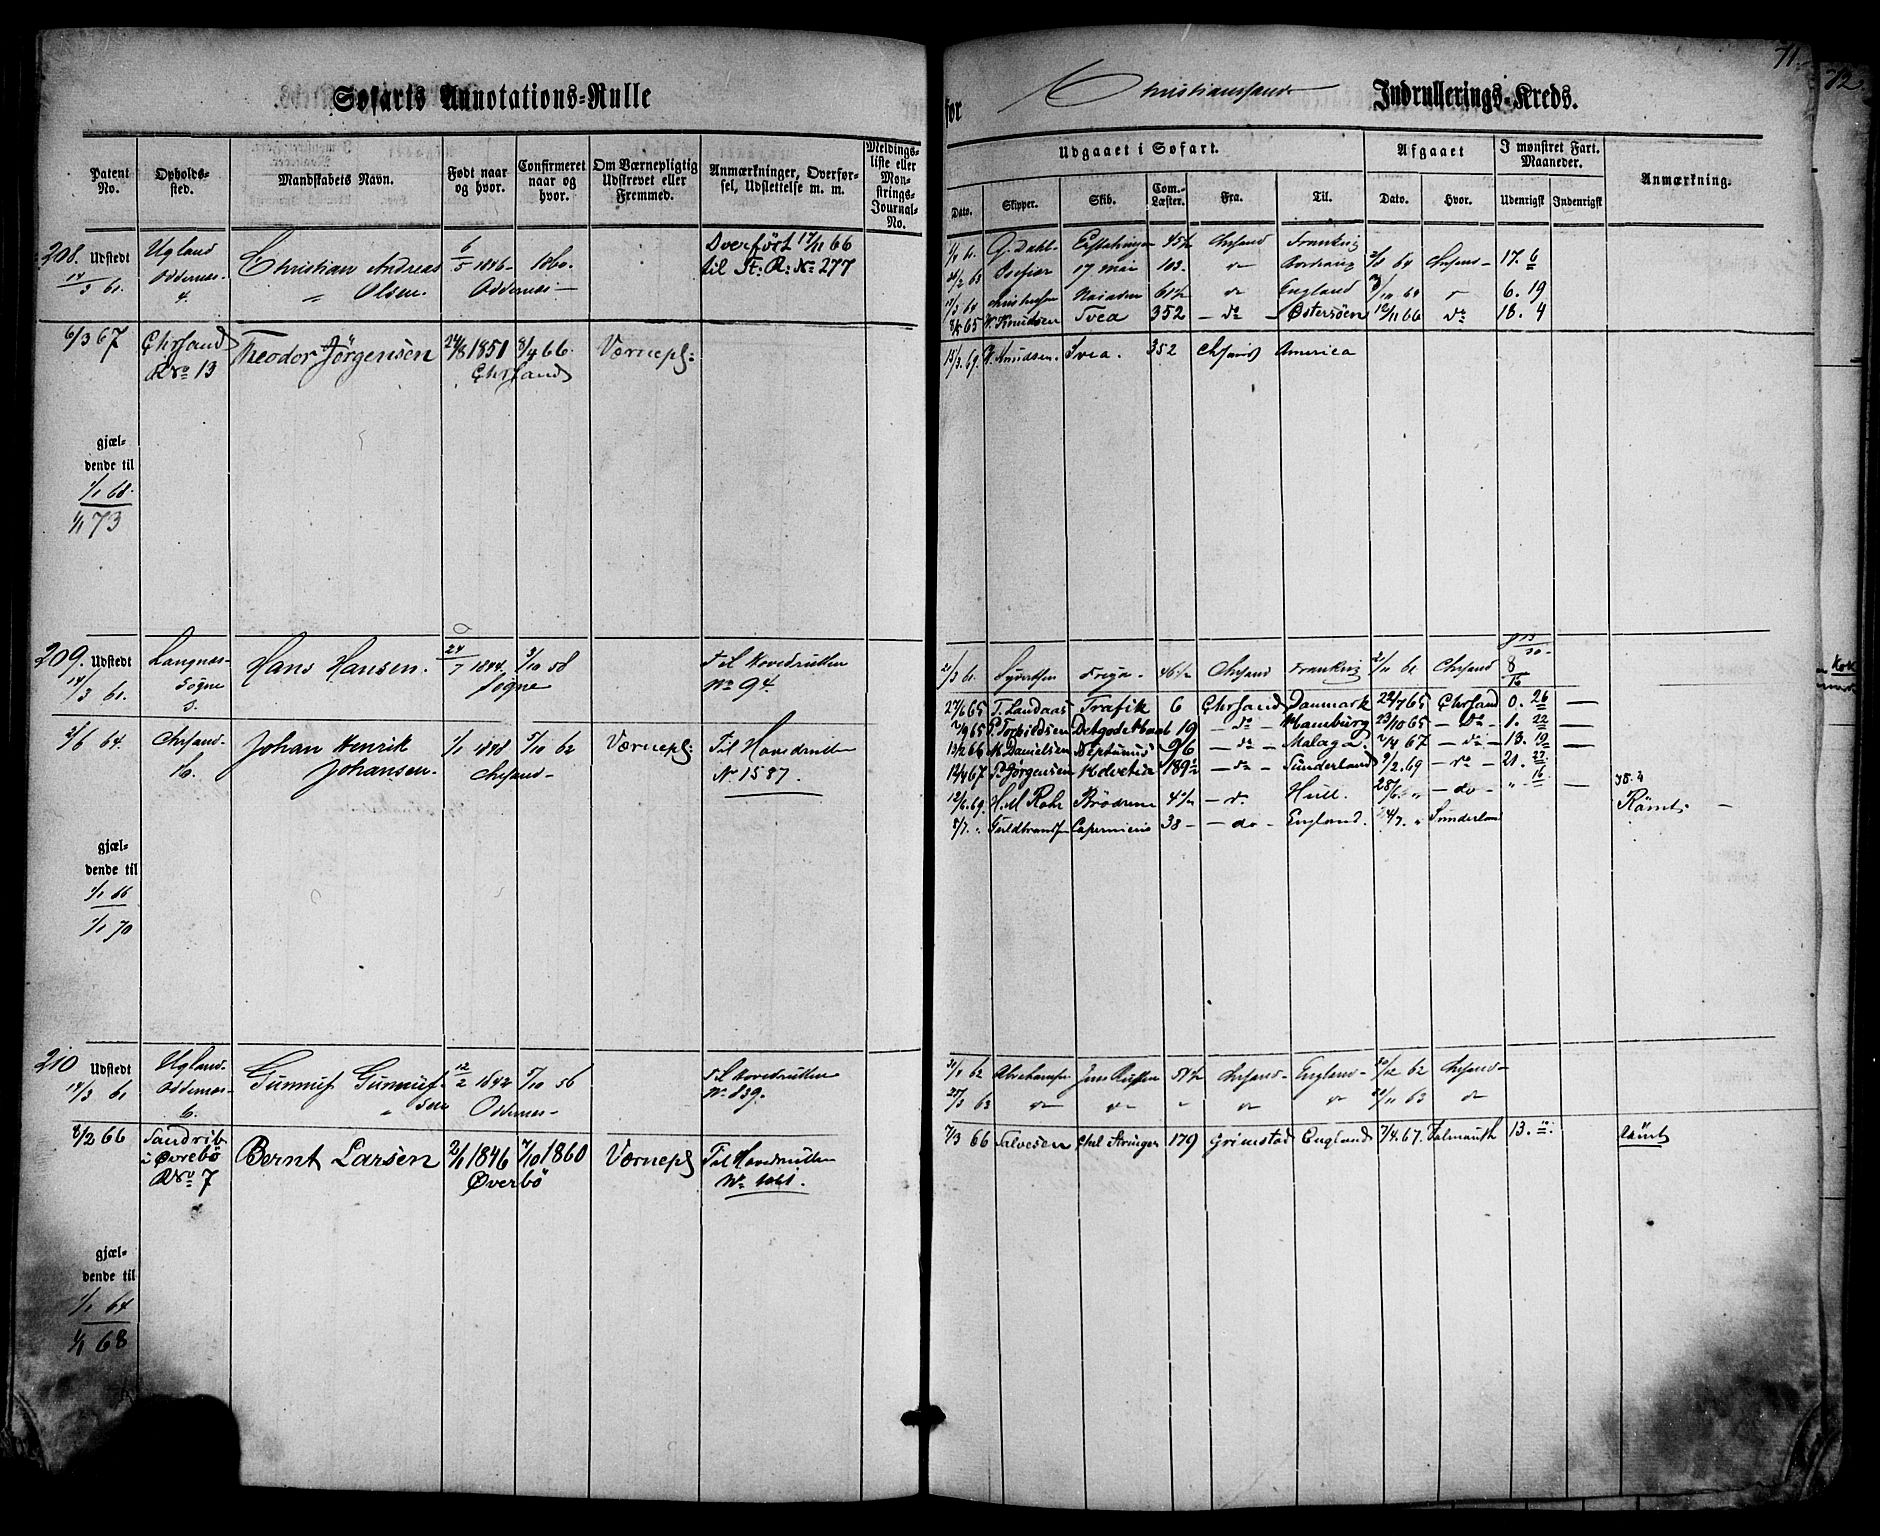 Søfarts Annotations-Rulle
for Christianssands Indrullerings-Kreds.
71.
72.
Patent No.
Opholdssted.
Mandskabets Navn.
Født naar og hvor.
Confirmeret naar og hvor.
Om Værnepligtig Udskrevet eller Fremmed.
Anmærkninger, Overførsel, Udslettelse m. m.
Meldingsliste eller Monstrings-Journal-No.
Udgaaet i Søfart.
Dato. Skipper. Skib. Com.-Læster. Fra. Til.
Afgaaet
Dato. Hvor.
I mønstret Fart. Maaneder.
Udenrigsk Indenrigsk
Anmærkning.
208. Udstedt 14/3 61.
Ugland Oddernes 4.
Christian Andreas Olsen.
6/5 1846. Oddernes
1860.
Overført 17/11 66 til St. R: No 277
G. Dahl 45½ Chrsand Frankrig
17 mai 103. do 64 Chrsand 17. 6
Naiaden 61½ do England 6. 19
W. Knudsen Svea 352 do Østersöen 10/11 66 do 18. 4
6/3 67
Chrsand R No 13
Theodor Jörgensen
24/8 1851 Chrsand
8/4 66
Værnepl:
15/3 69. W. Knudsen. Svea. 352 Chrsand America
gjældende til
1/1 68.
1/1 73
209. Udstedt 14/3 61.
Langnes Søgne 3.
Hans Hansen.
24/7 1844. Søgne
3/10 58
Til Hovedrullen No 94.
21/3 61. Syvertsen Freya 46½ Chrsand Frankrig 21/11 61 Chrsand 8
27/6 65 T. Landaas Trafik 6 Chrsand Danmark 22/7 65 Chrsand 0. 26
7/9 65 P. Torkildsen Detgodethaab 19 do Hamburg 23/10 65 do 1. 22
13/2 66 K Danielsen Neptunus 96 do Malaga 2/4 67 do 13. 19
12/4 67 P. Jørgensen Helvetia 189½ do Sunderland 9/2 69 do 21. 27
12/6. 69. H. M. Rohr Brödrene 4½ do Hull. 28/6 do 16
8/7. Capernicus 38 do England. 24/7. Sunderland
Rømt
2/6 64.
Chrsand 16.
Johan Henrik Johansen.
1/1 1848 Chrsand
7/10 62
Værnepl:
Til Hovedrullen No 1587.
gjældende til
1/1 66
1/1 70
210 Udstedt 14/3 61
Ugland Oddernes 6.
Gunnuf Gunnufsen
12/2 1842 Oddernes
5/10 56
Til Hovedrullen No 839.
30/1 62 Abrahamsen 51½ Chrsand England 30/12 62 Chrsand
25/3 63 do do do do 21/11 63 do
8/2 66
Sandrib i Øvrebö R No 7
Bernt Larsen
2/1 1846 Øverbö
7/10 1860
Værnepl
Til Hovedrullen No 1061.
7/3 66 Salvesen 179 Grimstad England 7/4. 67. Falmouth 13.
Rømt
gjældende til
1/1 64
1/1 68